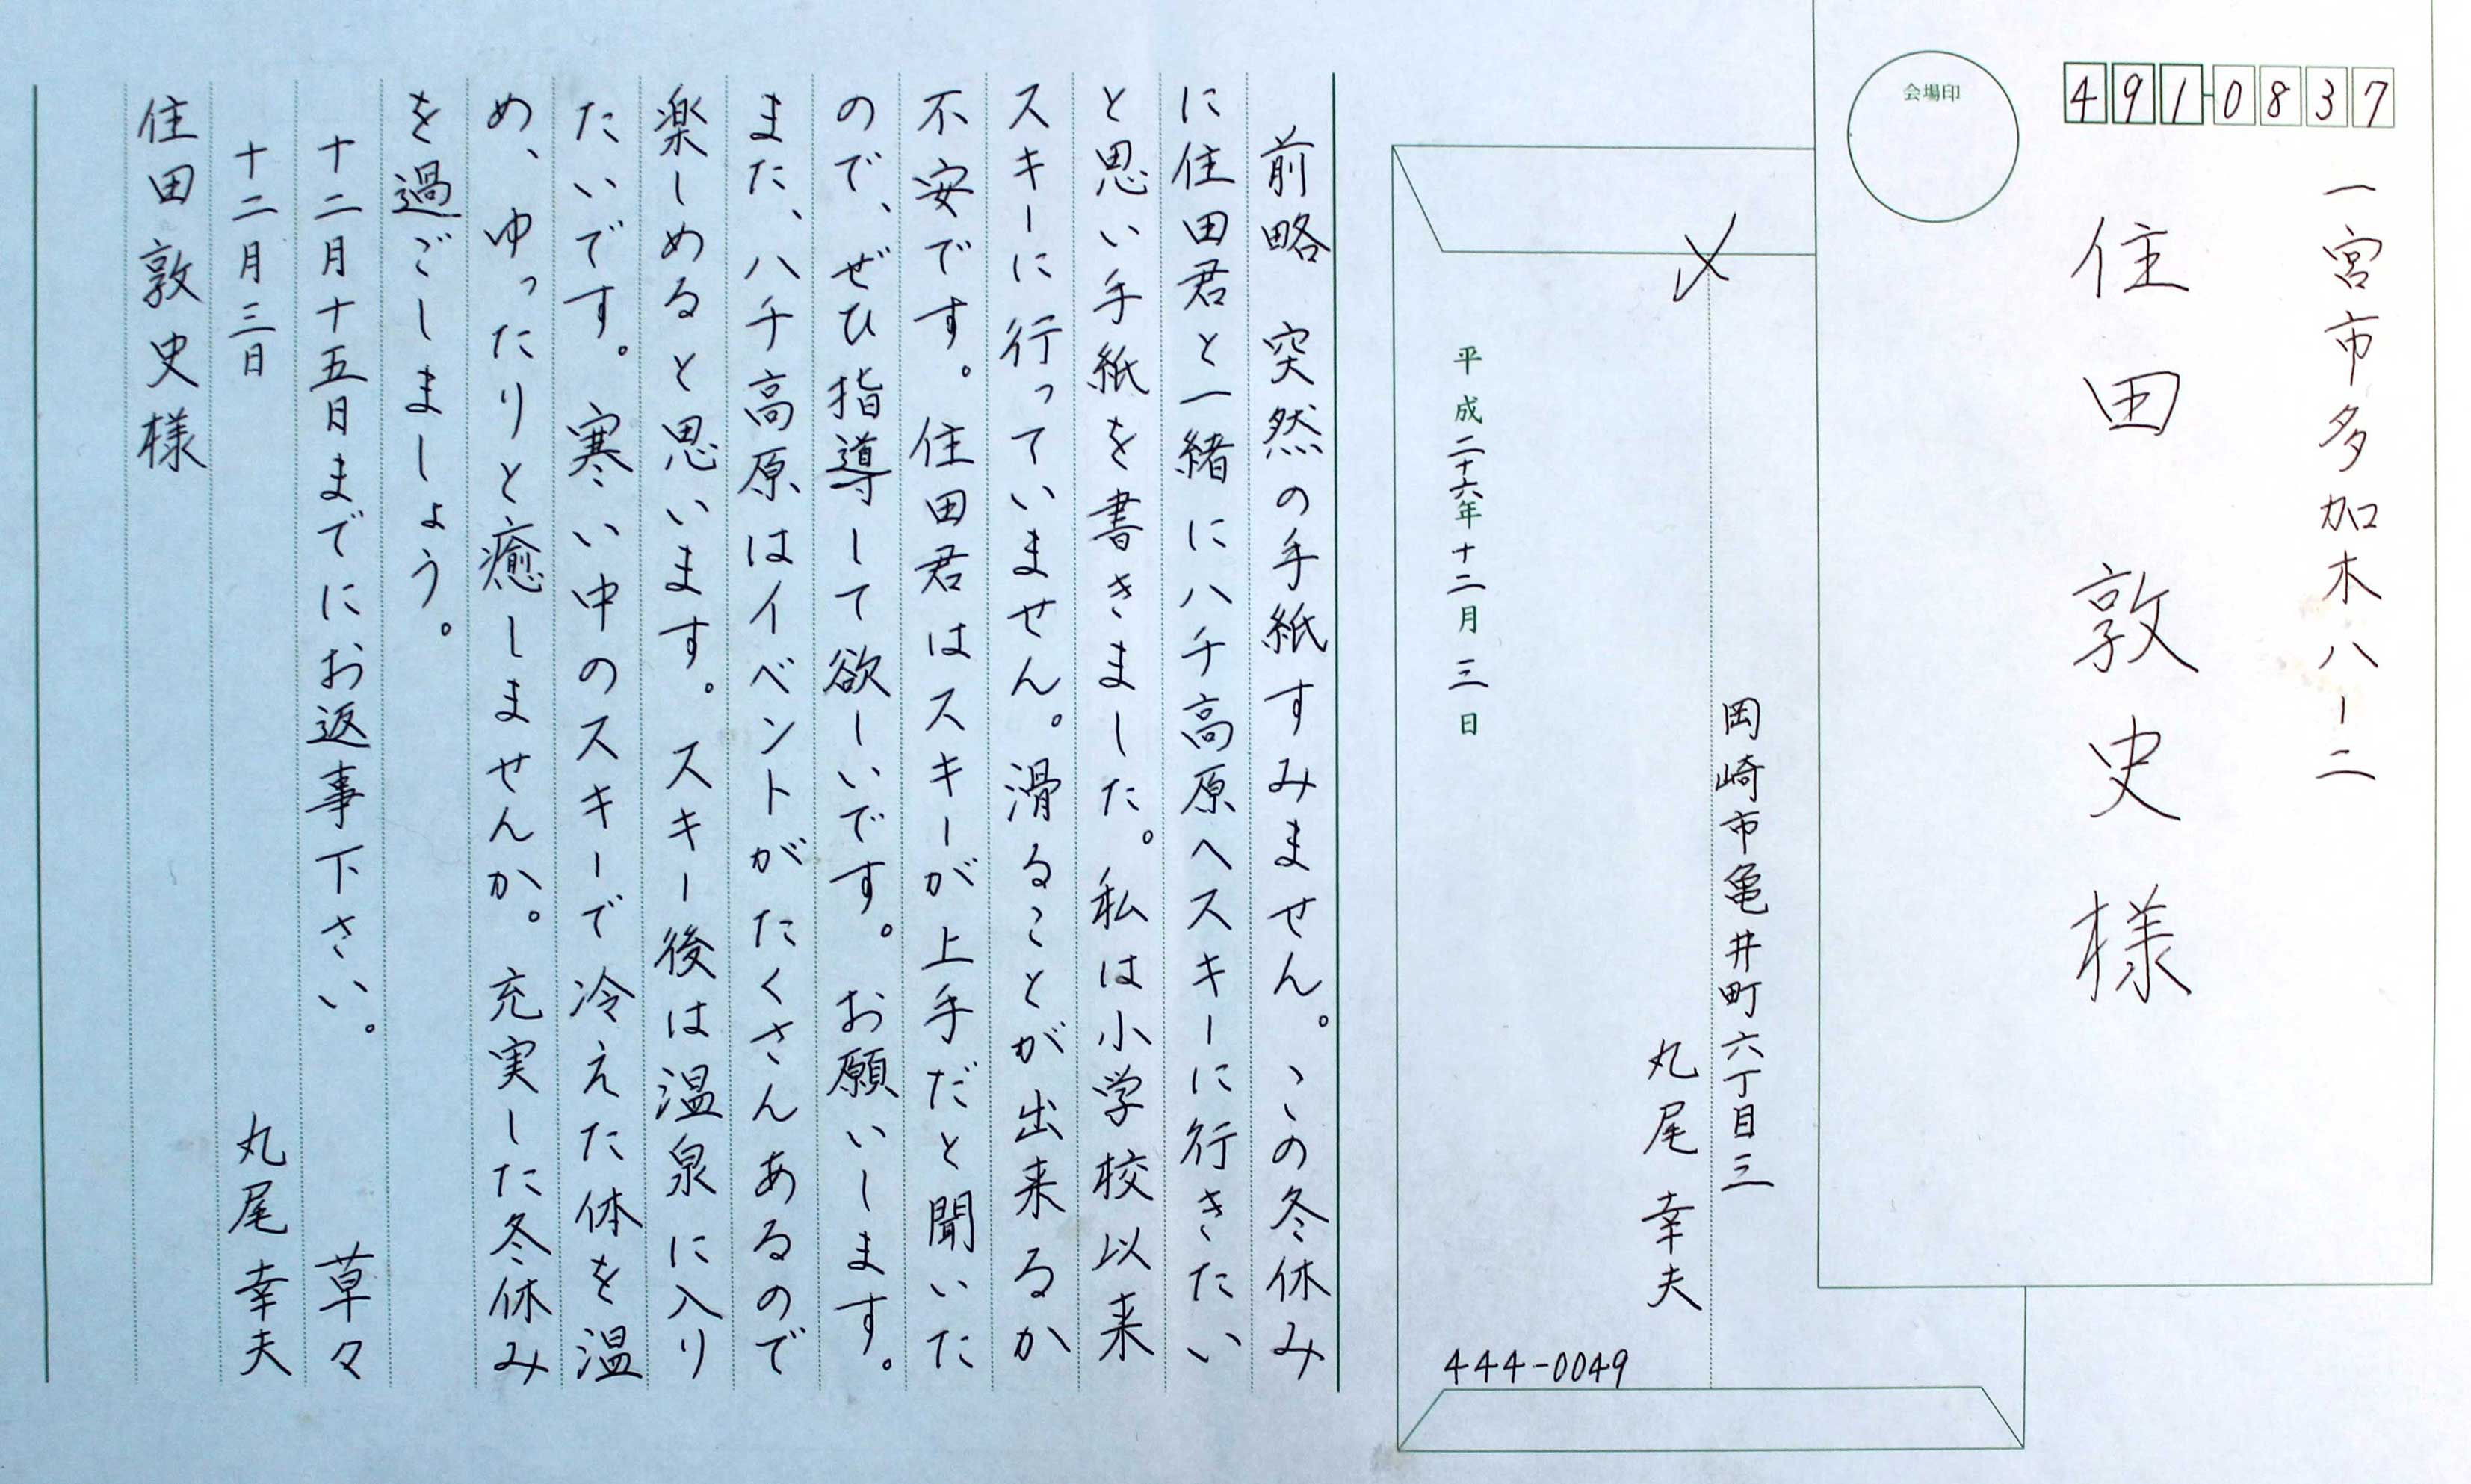 会場印
491-0837
一宮市多加木八ー二
住田敦史様
〆
岡崎市亀井町六丁目三
丸尾幸夫
平成二十六年十二月三日
444-0049
前略 突然の手紙すみません。この冬休み
に住田君と一緒にハチ高原へスキーに行きたい
と思い手紙を書きました。私は小学校以来
スキーに行っていません。滑ることが出来るか
不安です。住田君はスキーが上手だと聞いた
ので、ぜひ指導して欲しいです。お願いします。
また、ハチ高原はイベントがたくさんあるので
楽しめると思います。スキー後は温泉に入り
たいです。寒い中のスキーで冷えた体を温
め、ゆったりと癒しませんか。充実した冬休み
を過ごしましょう。
十二月十五日までにお返事下さい。 草々
十二月三日 丸尾幸夫
住田敦史様